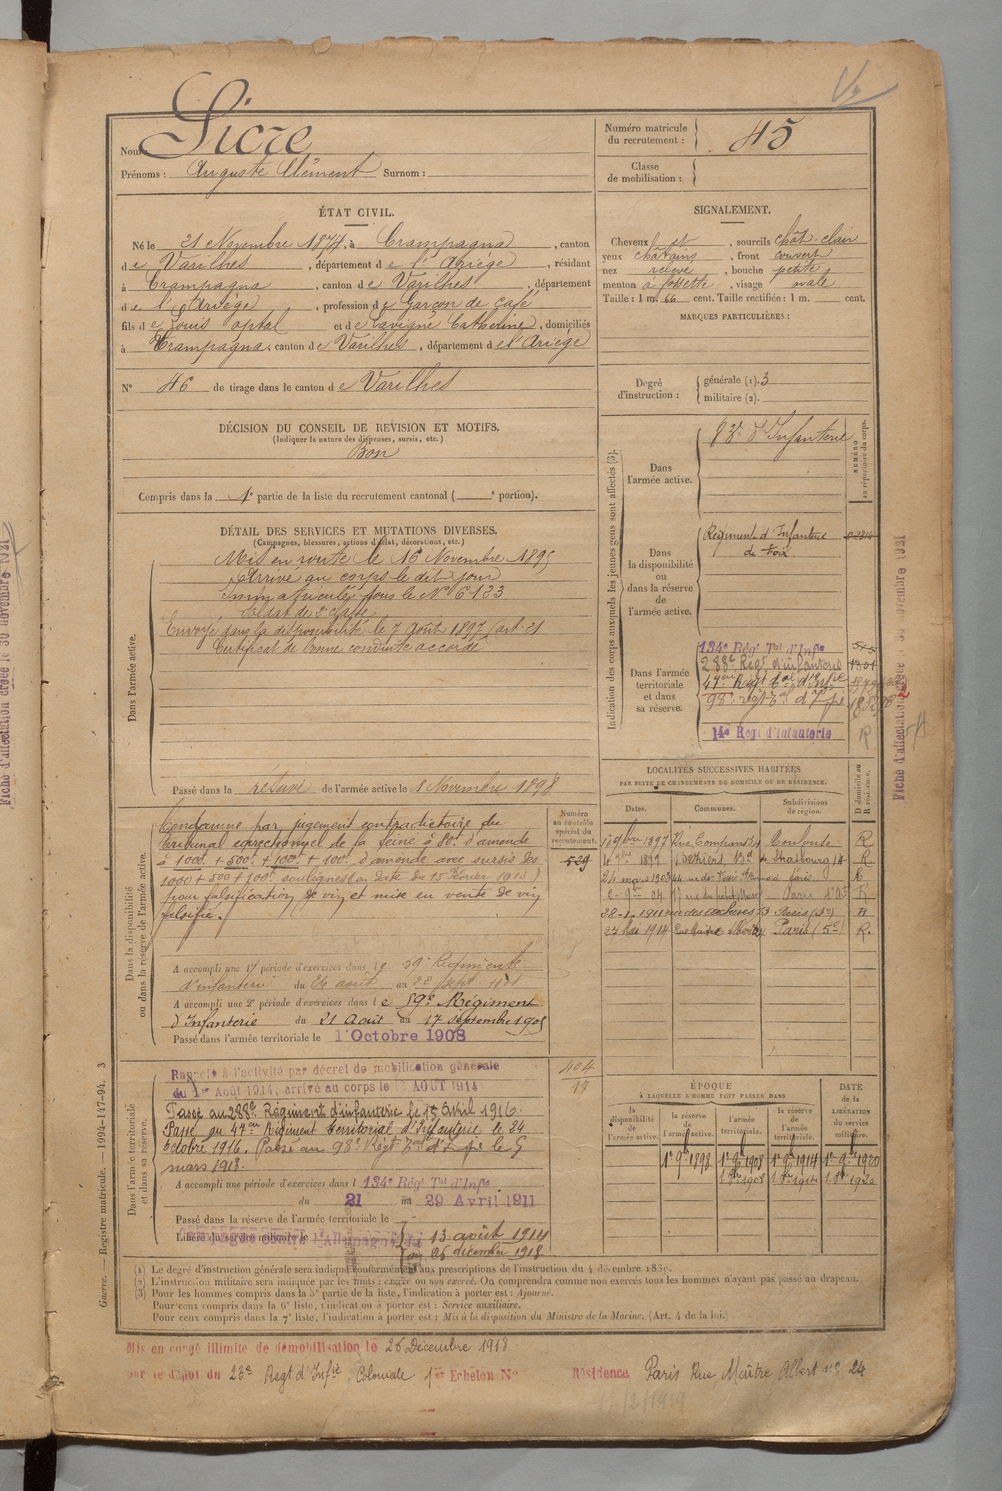 Nom : Sicre
Prénoms : Auguste Clément Surnom :
Numéro matricule du recrutement : 45
Classe de mobilisation :
ÉTAT CIVIL.
Né le 21 Novembre 1874, à Crampagna, canton
de Varilhes, département de l'Ariège, résidant
à Crampagna, canton de Varilhes, département
de l'Ariège, profession de Garçon de café
fils de Louis et de Lavigne Catherine, domiciliés
à Crampagna, canton de Varilhes, département de l'Ariège
N° 46 de tirage dans le canton de Varilhes
SIGNALEMENT.
Cheveux et, sourcils chât-clair
yeux châtains, front couvert
nez relevé, bouche petite
menton à fossette, visage ovale
Taille : 1 m. 66 cent. Taille rectifiée : 1 m. cent.
MARQUES PARTICULIÈRES :
Degré d'instruction : générale (1). 3
militaire (2).
DÉCISION DU CONSEIL DE REVISION ET MOTIFS.
(Indiquer la nature des dispenses, sursis, etc.)
Bon
Compris dans la 1e partie de la liste du recrutement cantonal ( e portion).
DÉTAIL DES SERVICES ET MUTATIONS DIVERSES.
(Campagnes, blessures, actions d'éclat, décorations, etc.)
Dans l'armée active.
Mis en route le 16 Novembre 1895
Arrivé au corps le dit jour
Immatriculé sous le N° 6123
Soldat de 2e classe
Envoyé dans la disponibilité le 7 Août 1897 (art. 21
Certificat de bonne conduite accordé
Passé dans la réserve de l'armée active le 1 Novembre 1898
Indication des corps auxquels les jeunes gens sont affectés (3).
NUMÉRO au répertoire du corps.
Dans l'armée active.
83e d'Infanterie
Dans la disponibilité ou dans la réserve de l'armée active.
Régiment d'Infanterie
de Foix
Dans l'armée territoriale et dans sa réserve.
134e Régt Tal d'Infie
288e Régt d'infanterie 1301
47eme Régt Tal d'Infie
98e régt Tal d'Infie
14e Régt d'Infanterie R
Dans la disponibilité ou dans la réserve de l'armée active.
Numéro au contrôle spécial du recrutement.
529
Condamné par jugement contradictoire du
tribunal correctionnel de la Seine à 80f. d'amende
à 1000f + 500f + 100f + 100f d'amende avec sursis des
1000 + 500 + 100f soulignés (en date du 15 Février 1915)
pour falsification de vin et mise en vente de vin
falsifié.
A accompli une 1e période d'exercices dans le 59e Régiment
d'infanterie du 26 août au 22 Sept 1901
A accompli une 2e période d'exercices dans le 59e Régiment
d'Infanterie du 21 Août au 17 septembre 1905
Passé dans l'armée territoriale le 1 Octobre 1908
LOCALITÉS SUCCESSIVES HABITÉES
PAR SUITE DE CHANGEMENTS DE DOMICILE OU DE RÉSIDENCE.
Dates. Communes. Subdivisions de région. D domicile ou R résidence.
9bre 1897 Toulouse R
1899 Bd de Strasbourg R.
24 mars 1903 Paris
04 Paris
28-1-1911 rue des archives 73 Paris (3e) R
27 Mai 1914 Rue Maître Albert Paris (5e) R.
Dans l'armée territoriale et dans sa réserve.
404
14
Rappelé à l'activité par décret de mobilisation générale
du 1er Août 1914, arrivé au corps le AOUT 1914
Passé au 288e Régiment d'infanterie le 15 Avril 1916.
Passé au 47eme Régiment territorial d'Infanterie le 24
octobre 1916. Passé au 98e Régt Tal d'Infie le 5
mars 1918.
A accompli une période d'exercices dans l 134e Régt Tal d'Infie
du 21 au 29 Avril 1911
Passé dans la réserve de l'armée territoriale le
Libéré du service militaire le
Campagne contre l'Allemagne du
13 août 1914
au 26 décembre 1918
ÉPOQUE
À LAQUELLE L'HOMME DOIT PASSER DANS
la disponibilité de l'armée active. la réserve de l'armée active. l'armée territoriale. la réserve de l'armée territoriale. DATE de la LIBÉRATION du service militaire.
1er 9bre 1898 1er 9bre 1908 1er 9bre 1914 1er 9bre 1920
1 8bre 1908 1 8bre 1914 1 8bre 1920
(1) Le degré d'instruction générale sera indiqué conformément aux prescriptions de l'instruction du 4 décembre 1889.
(2) L'instruction militaire sera indiquée par les mots : exercé ou non exercé. On comprendra comme non exercés tous les hommes n'ayant pas passé au drapeau.
(3) Pour les hommes compris dans la 5e partie de la liste, l'indication à porter est : Ajourné.
Pour ceux compris dans la 6e liste, l'indication à porter est : Service auxiliaire.
Pour ceux compris dans la 7e liste, l'indication à porter est : Mis à la disposition du Ministre de la Marine. (Art. 4 de la loi.)
Guerre. — Registre matricule. — 1994-147-94. 3
Mis en congé illimité de démobilisation le 26 Décembre 1918
par le dépôt du 23e Régt d'Infie Coloniale 1er Echelon N°
Résidence Paris Rue Maître Albert n° 24
Fiche d'affectation créée le 30 novembre 1921